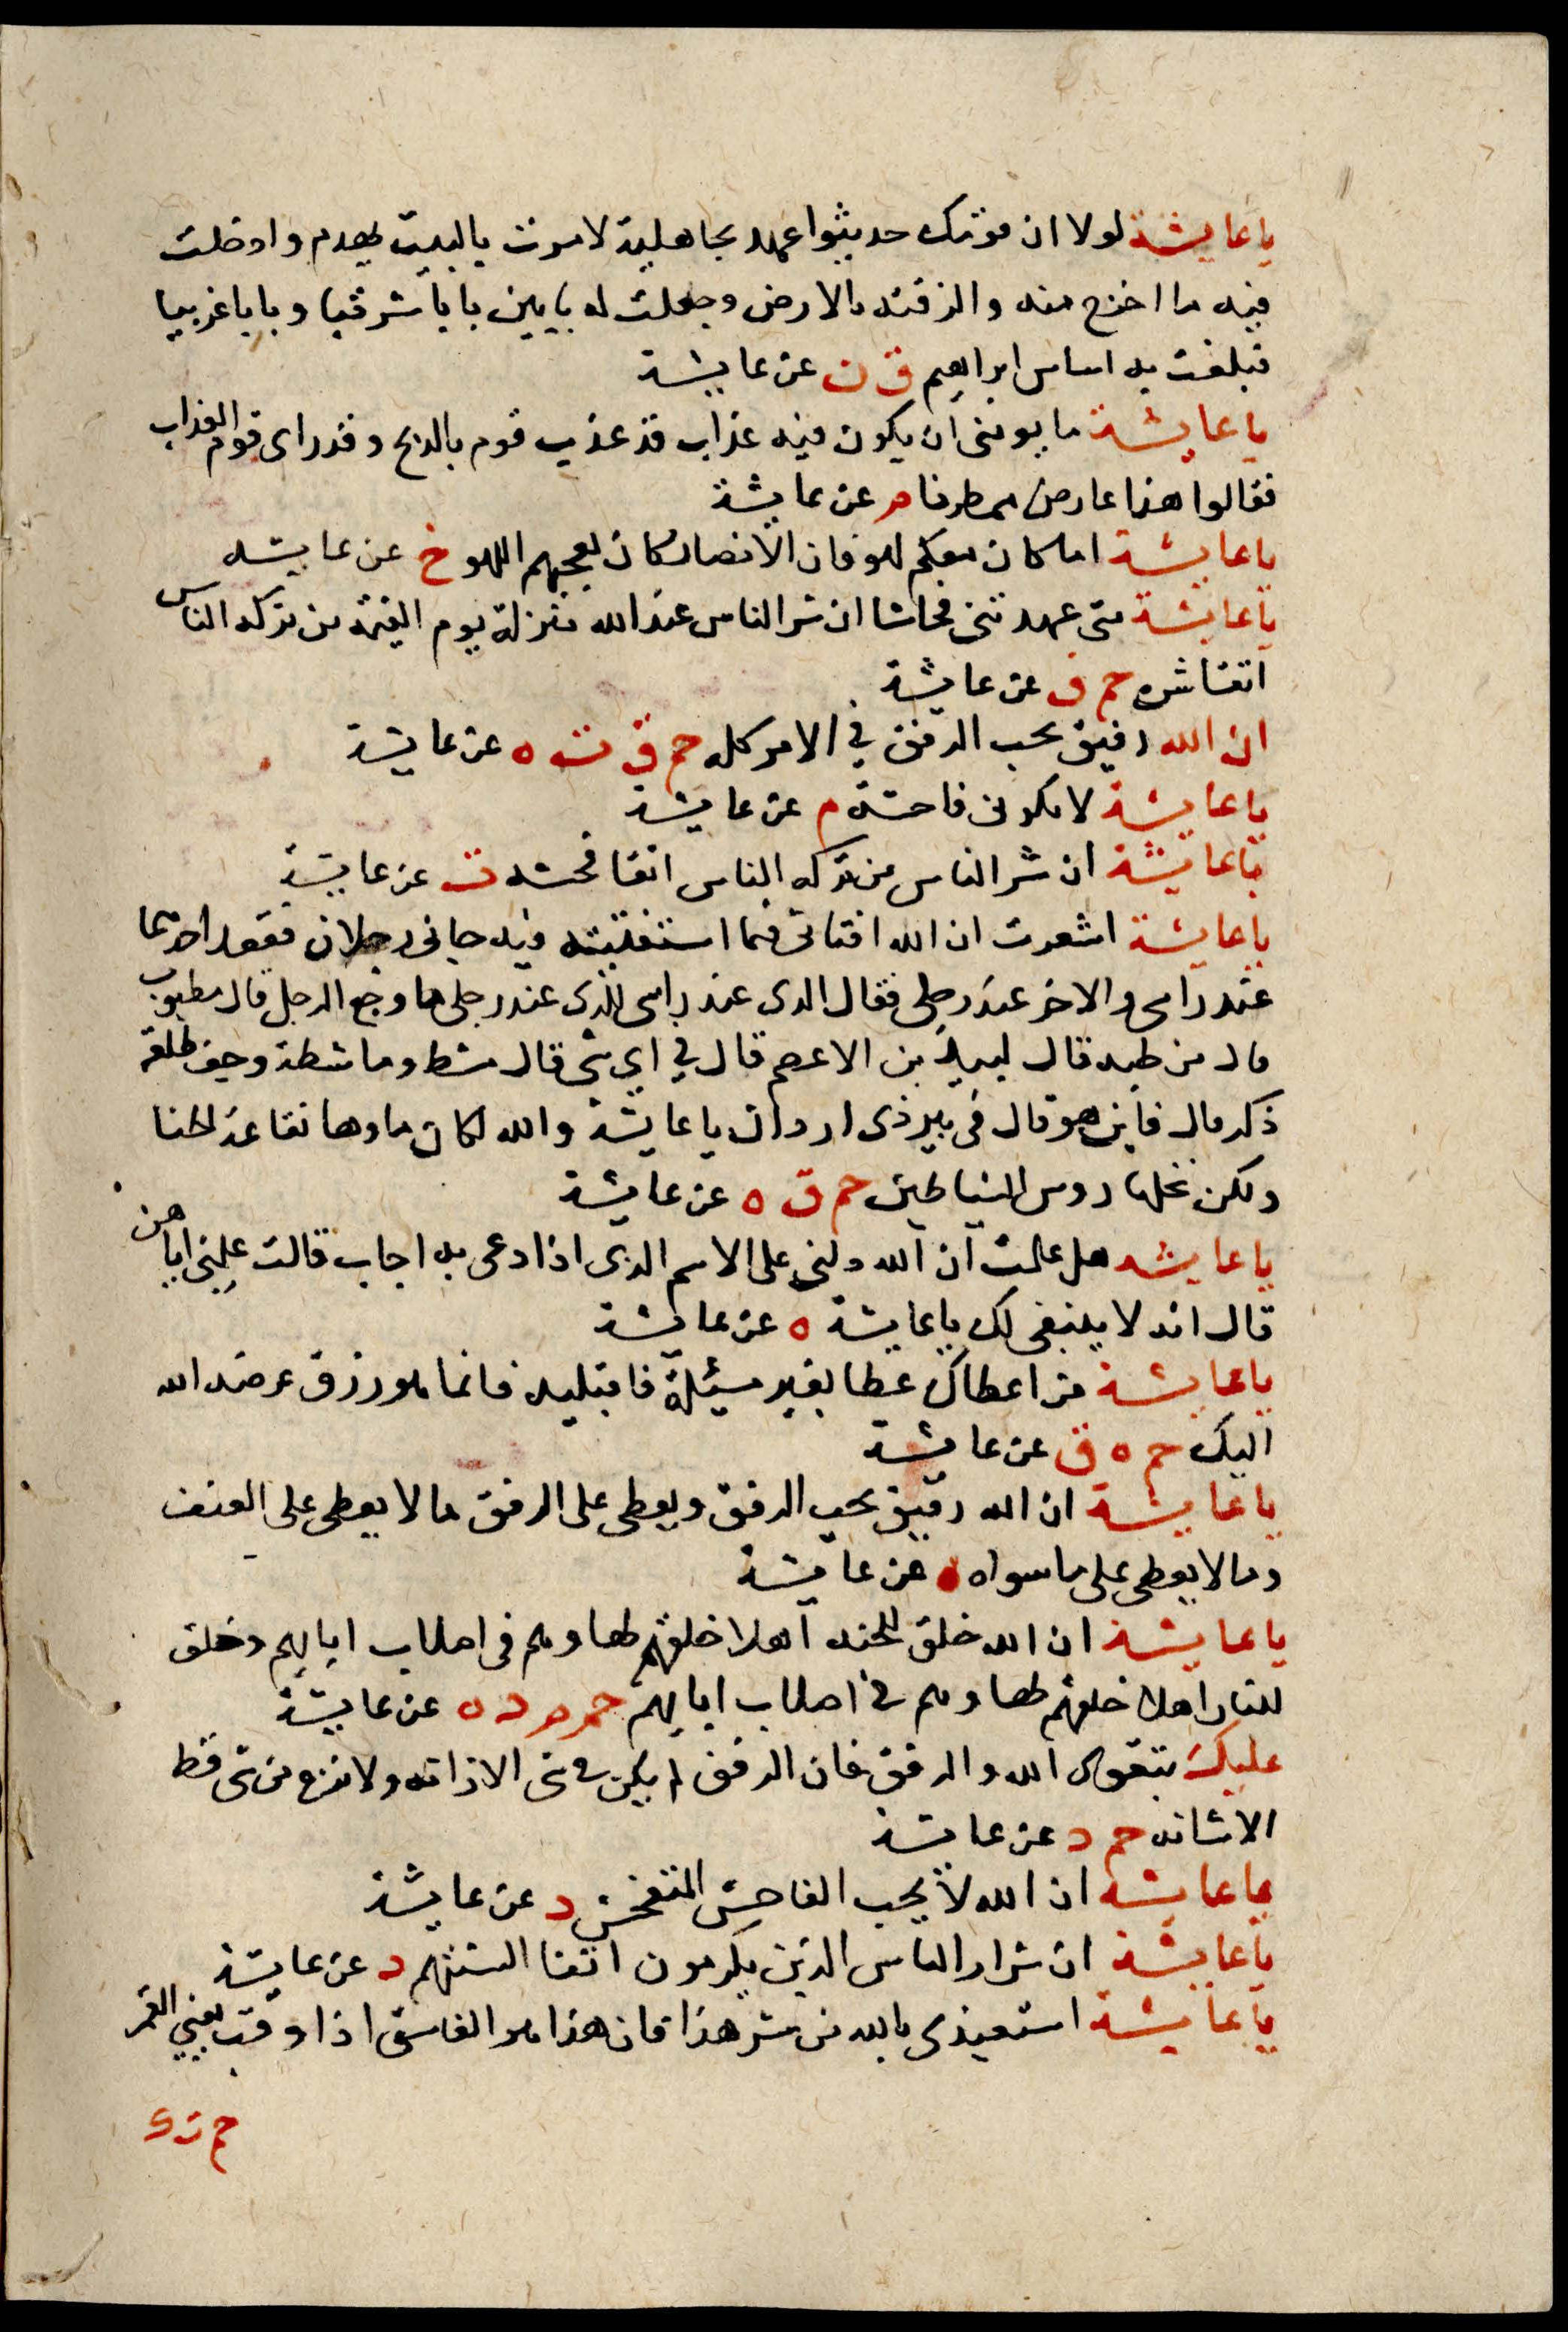 يا عايشة لولا ان قومك حديثوا عهد بجاهلية لامرت بالبيت يهدم وادخلت
فيه ما اخرج منه والزقته بالارض وجعلت له بابين بابا شرقيا وبابا غربيا
فبلغت به اساس ابراهيم ق ن عن عايشة
يا عايشة ما يومنني ان يكون فيه عذاب قد عذب قوم بالريح وقد راى قوم العذاب
فقالوا هذا عارض ممطرنا م عن عايشة
يا عايشة اما كان معكم لهو فان الانصار كان يعجبهم اللهو خ عن عايشه
يا عايشة متى عهدتني فحاشا ان شر الناس عند الله منزلة يوم القيمة من تركه الناس
اتقا شره حم ق عن عايشة
ان الله رفيق يحب الرفق في الامر كله حم ق ت ه عن عايشة
يا عايشة لا تكوني فاحشة م عن عايشة
يا عايشة ان شر الناس من تركه الناس اتقا فحشه ت عن عايشة
يا عايشة اشعرت ان الله افتاني فيما استفتيته فيه جاني رجلان فقعد احدهما
عند راسي والاخر عند رجلي فقال الذي عند راسي للذي عند رجلي ما وجع الرجل قال مطبوب
قال من طبه قال لبيد بن الاعصم قال في اي شي قال مشط وماشطة وجف طلعة
ذكر قال فاين هو قال في بير ذي اروان يا عايشة والله لكان ماوها نقاعة الحنا
ولكن نخلها روس الشياطين حم ق ه عن عايشة
يا عايشه هل علمت ان الله دلني على الاسم الذي اذا دعي به اجاب قالت علمني اياه
قال انه لا ينبغي لك يا عايشة ه عن عايشة
يا عايشة من اعطاك عطا بغير مسئلة فاقبليه فانما هو رزق عرضه الله
اليك حم ه ق عن عايشة
يا عايشة ان الله رفيق يحب الرفق ويعطي على الرفق ما لا يعطي على العنف
وما لا يعطي على ما سواه عن عايشة
يا عايشة ان الله خلق للجنه اهلا خلقهم لها وهم في اصلاب ابايهم وخلق
للنار اهلا خلقهم لها وهم في اصلاب ابايهم حم م د ن عن عايشة
عليك بتقوى الله والرفق فان الرفق لم يكن في شي الا زانه ولا نزع من شي قط
الا شانه حم د عن عايشة
يا عايشة ان الله لا يحب الفاحش المتفحش د عن عايشة
يا عايشة ان شرار الناس الذين يكرمون اتقا السنتهم د عن عايشة
يا عايشة استعيذي بالله من شر هذا فان هذا هو الغاسق اذا وقب يعني القمر
حم ت ك